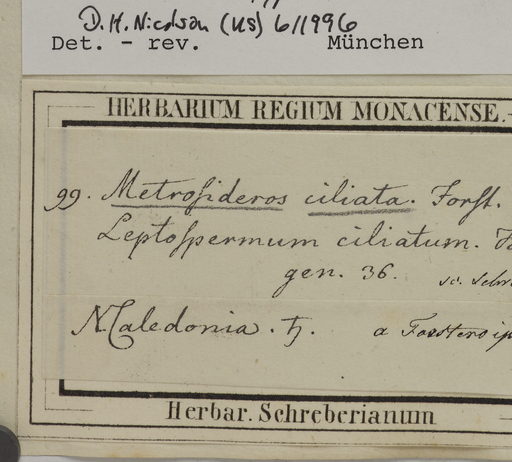 D. H. Nicolson (US) 6/1996
Det. - rev. München
HERBARIUM REGIUM MONACENSE.
99. Metroſideros ciliata. Forſt.
Leptoſpermum ciliatum.
gen. 36. sc.
N. Caledonia. ♄. a
Herbar. Schreberianum